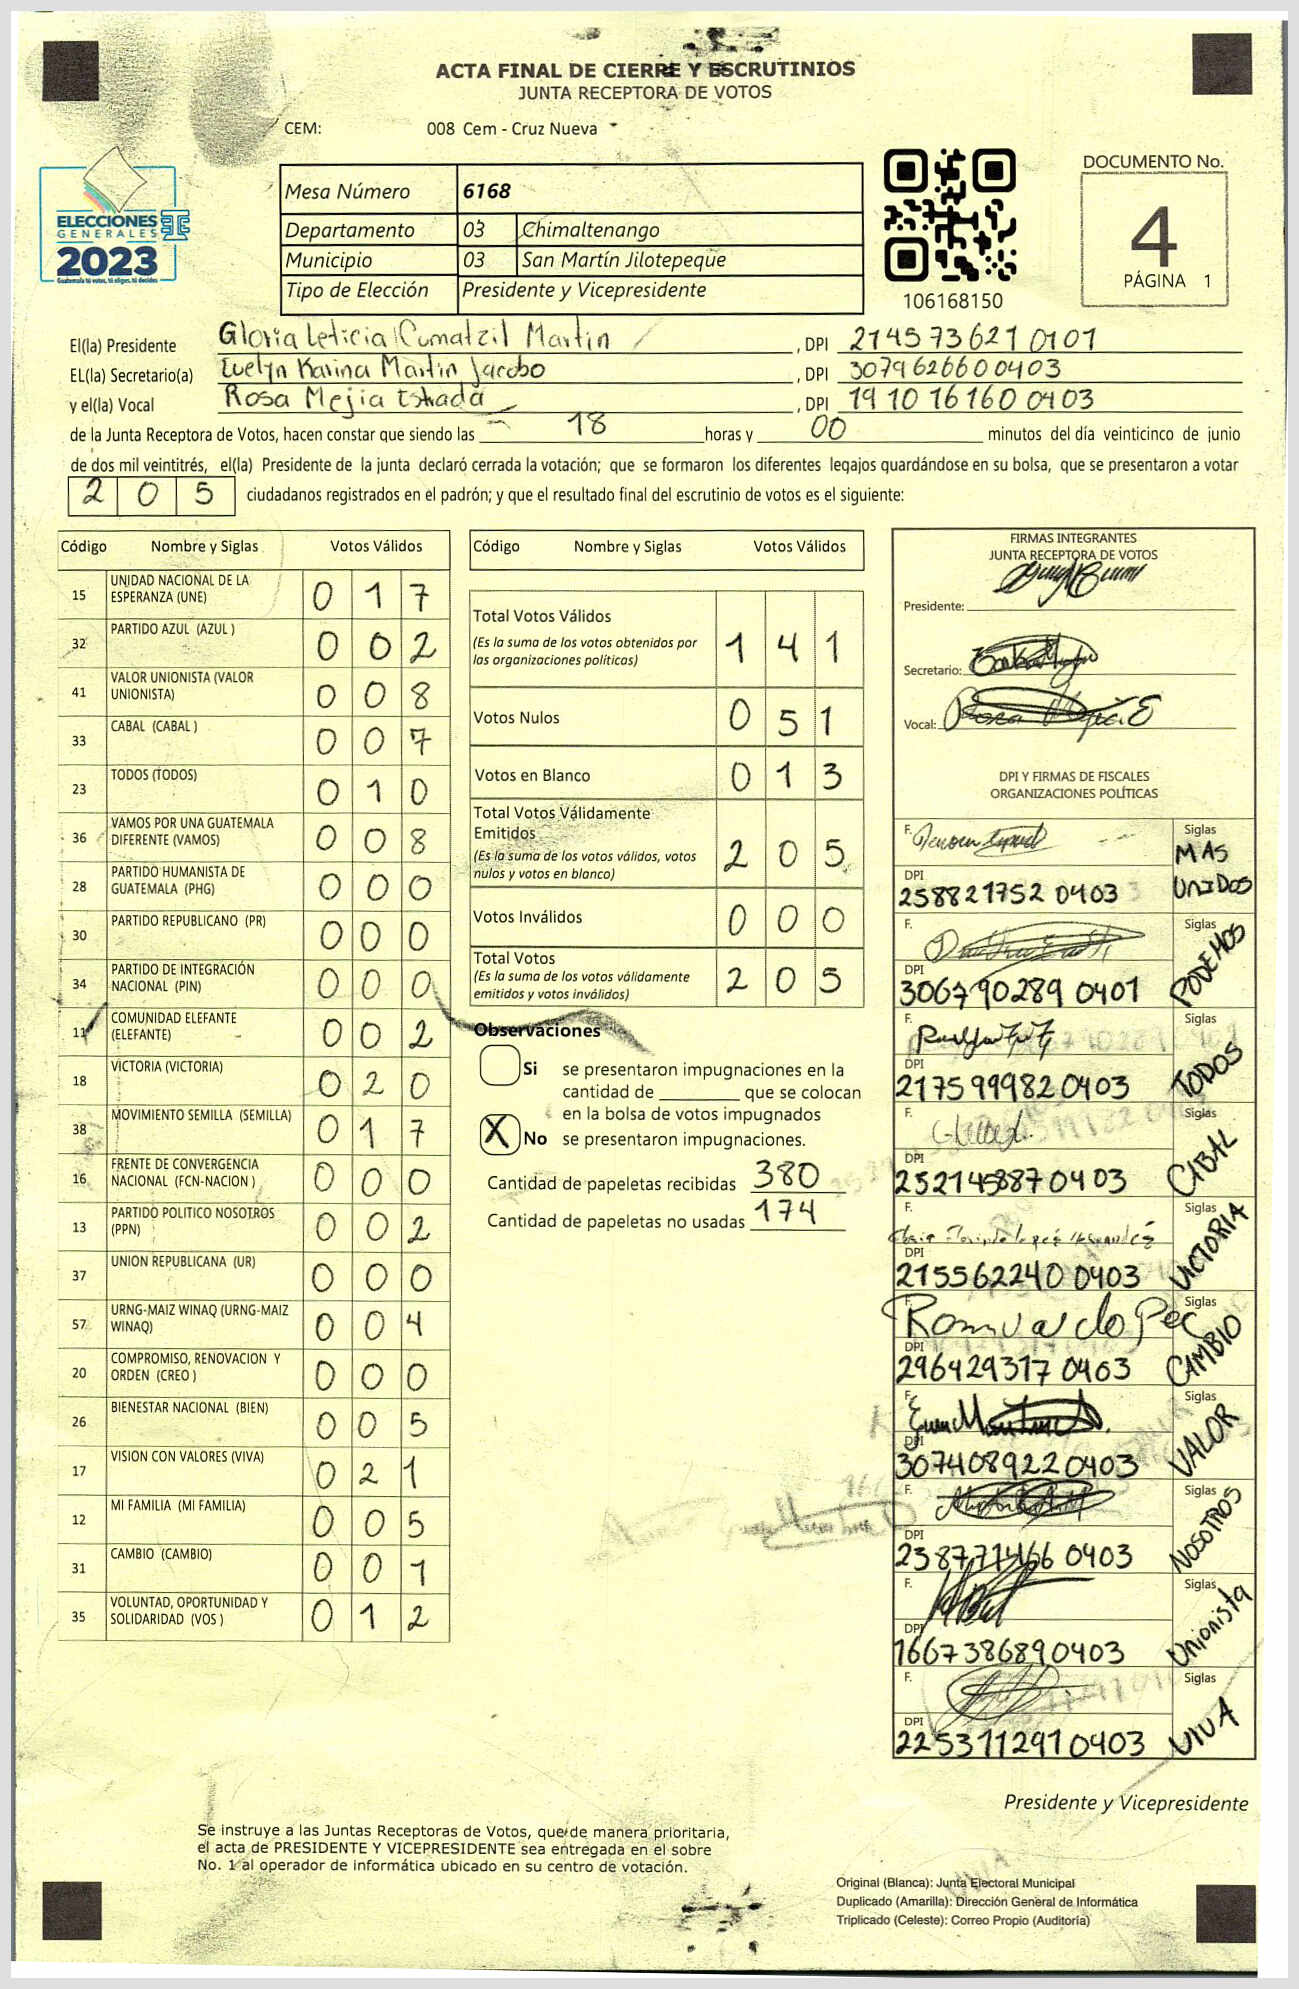 ACTA FINAL DE CIERRE Y ESCRUTINIOS
JUNTA RECEPTORA DE VOTOS
CEM: 008 Cem - Cruz Nueva
ELECCIONES
GENERALES
2023
Guatemala tú votas, tú eliges, tú decides
Mesa Número 6168
Departamento 03 Chimaltenango
Municipio 03 San Martín Jilotepeque
Tipo de Elección Presidente y Vicepresidente
106168150
DOCUMENTO No.
4
PÁGINA 1
El(la) Presidente Gloria Leticia Cumatzil Martin, DPI 2145736210101
EL(la) Secretario(a) Evelyn Karina Martin Jacobo, DPI 3079626600403
y el(la) Vocal Rosa Mejia Estrada, DPI 1910161600403
de la Junta Receptora de Votos, hacen constar que siendo las 18 horas y 00 minutos del día veinticinco de junio
de dos mil veintitrés, el(la) Presidente de la junta declaró cerrada la votación; que se formaron los diferentes legajos guardándose en su bolsa, que se presentaron a votar
205 ciudadanos registrados en el padrón; y que el resultado final del escrutinio de votos es el siguiente:
Código Nombre y Siglas Votos Válidos
15 UNIDAD NACIONAL DE LA ESPERANZA (UNE) 017
32 PARTIDO AZUL (AZUL ) 002
41 VALOR UNIONISTA (VALOR UNIONISTA) 008
33 CABAL (CABAL ) 007
23 TODOS (TODOS) 010
36 VAMOS POR UNA GUATEMALA DIFERENTE (VAMOS) 008
28 PARTIDO HUMANISTA DE GUATEMALA (PHG) 000
30 PARTIDO REPUBLICANO (PR) 000
34 PARTIDO DE INTEGRACIÓN NACIONAL (PIN) 000
11 COMUNIDAD ELEFANTE (ELEFANTE) 002
18 VICTORIA (VICTORIA) 020
38 MOVIMIENTO SEMILLA (SEMILLA) 017
16 FRENTE DE CONVERGENCIA NACIONAL (FCN-NACION ) 000
13 PARTIDO POLITICO NOSOTROS (PPN) 002
37 UNION REPUBLICANA (UR) 000
57 URNG-MAIZ WINAQ (URNG-MAIZ WINAQ) 004
20 COMPROMISO, RENOVACION Y ORDEN (CREO ) 000
26 BIENESTAR NACIONAL (BIEN) 005
17 VISION CON VALORES (VIVA) 021
12 MI FAMILIA (MI FAMILIA) 005
31 CAMBIO (CAMBIO) 001
35 VOLUNTAD, OPORTUNIDAD Y SOLIDARIDAD (VOS ) 012
Código Nombre y Siglas Votos Válidos
Total Votos Válidos 141
(Es la suma de los votos obtenidos por
las organizaciones políticas)
Votos Nulos 051
Votos en Blanco 013
Total Votos Válidamente
Emitidos 205
(Es la suma de los votos válidos, votos
nulos y votos en blanco)
Votos Inválidos 000
Total Votos 205
(Es la suma de los votos válidamente
emitidos y votos inválidos)
Observaciones
Si se presentaron impugnaciones en la
cantidad de ________ que se colocan
en la bolsa de votos impugnados
X No se presentaron impugnaciones.
Cantidad de papeletas recibidas 380
Cantidad de papeletas no usadas 174
FIRMAS INTEGRANTES
JUNTA RECEPTORA DE VOTOS
Presidente:
Secretario:
Vocal:
DPI Y FIRMAS DE FISCALES
ORGANIZACIONES POLÍTICAS
F. Siglas MAS UNIDOS
DPI 2588217520403
F. Siglas PODEMOS
DPI 3067902890401
F. Siglas TODOS
DPI 2175999820403
F. Siglas CABAL
DPI 2521458870403
F. Siglas VICTORIA
DPI 2155622400403
F. Romualdo Pec Siglas CAMBIO
DPI 2964293170403
F. Siglas VALOR
DPI 3074089220403
F. Siglas NOSOTROS
DPI 2387714660403
F. Siglas Unionista
DPI 1667386890403
F. Siglas VIVA
DPI 2253112910403
Presidente y Vicepresidente
Se instruye a las Juntas Receptoras de Votos, que de manera prioritaria,
el acta de PRESIDENTE Y VICEPRESIDENTE sea entregada en el sobre
No. 1 al operador de informática ubicado en su centro de votación.
Original (Blanca): Junta Electoral Municipal
Duplicado (Amarilla): Dirección General de Informática
Triplicado (Celeste): Correo Propio (Auditoría)